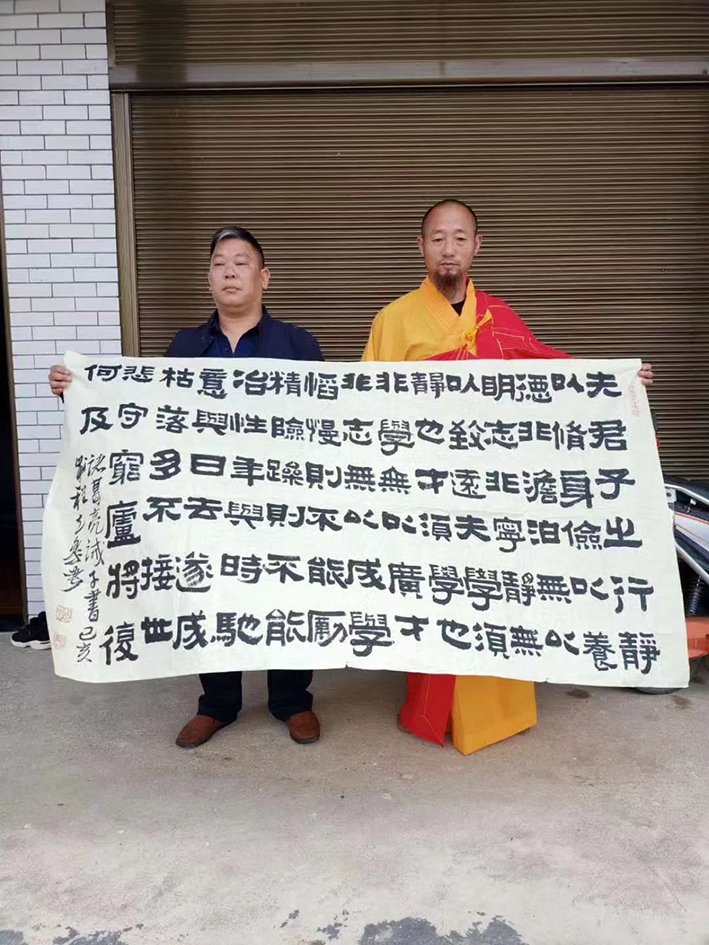 夫君子之行靜
以脩身儉以養
德非澹泊無以
明志非寧靜無
以致遠夫學須
靜也才須學也
非學無以廣才
非志無以成學
慆慢則不能勵
精險躁則不能
冶性年與時馳
意與日去遂成
枯落多不接世
悲守窮廬將復
何及
諸葛亮诫子書己亥